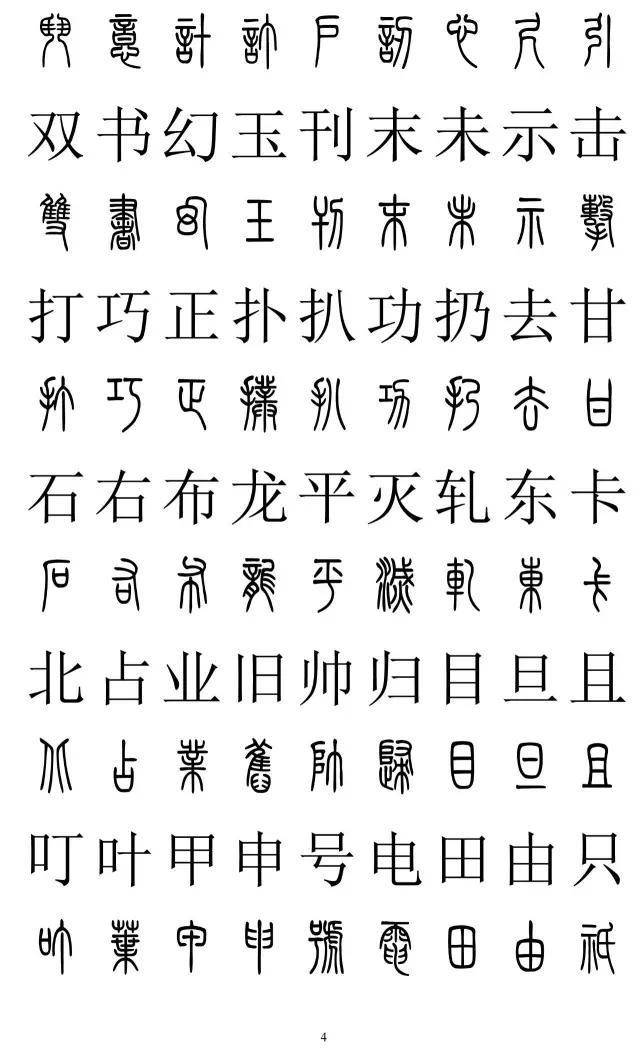 意 計 訂 戶 認 心 尺 引
双 书 幻 玉 刊 末 未 示 击
雙 書 幻 玉 刊 末 未 示 擊
打 巧 正 扑 扒 功 扔 去 甘
打 巧 正 撲 扒 功 扔 去 甘
石 右 布 龙 平 灭 轧 东 卡
石 右 布 龍 平 滅 軋 東 卡
北 占 业 旧 帅 归 目 旦 且
北 占 業 舊 帥 歸 目 旦 且
叮 叶 甲 申 号 电 田 由 只
叮 葉 甲 申 號 電 田 由 祇
4